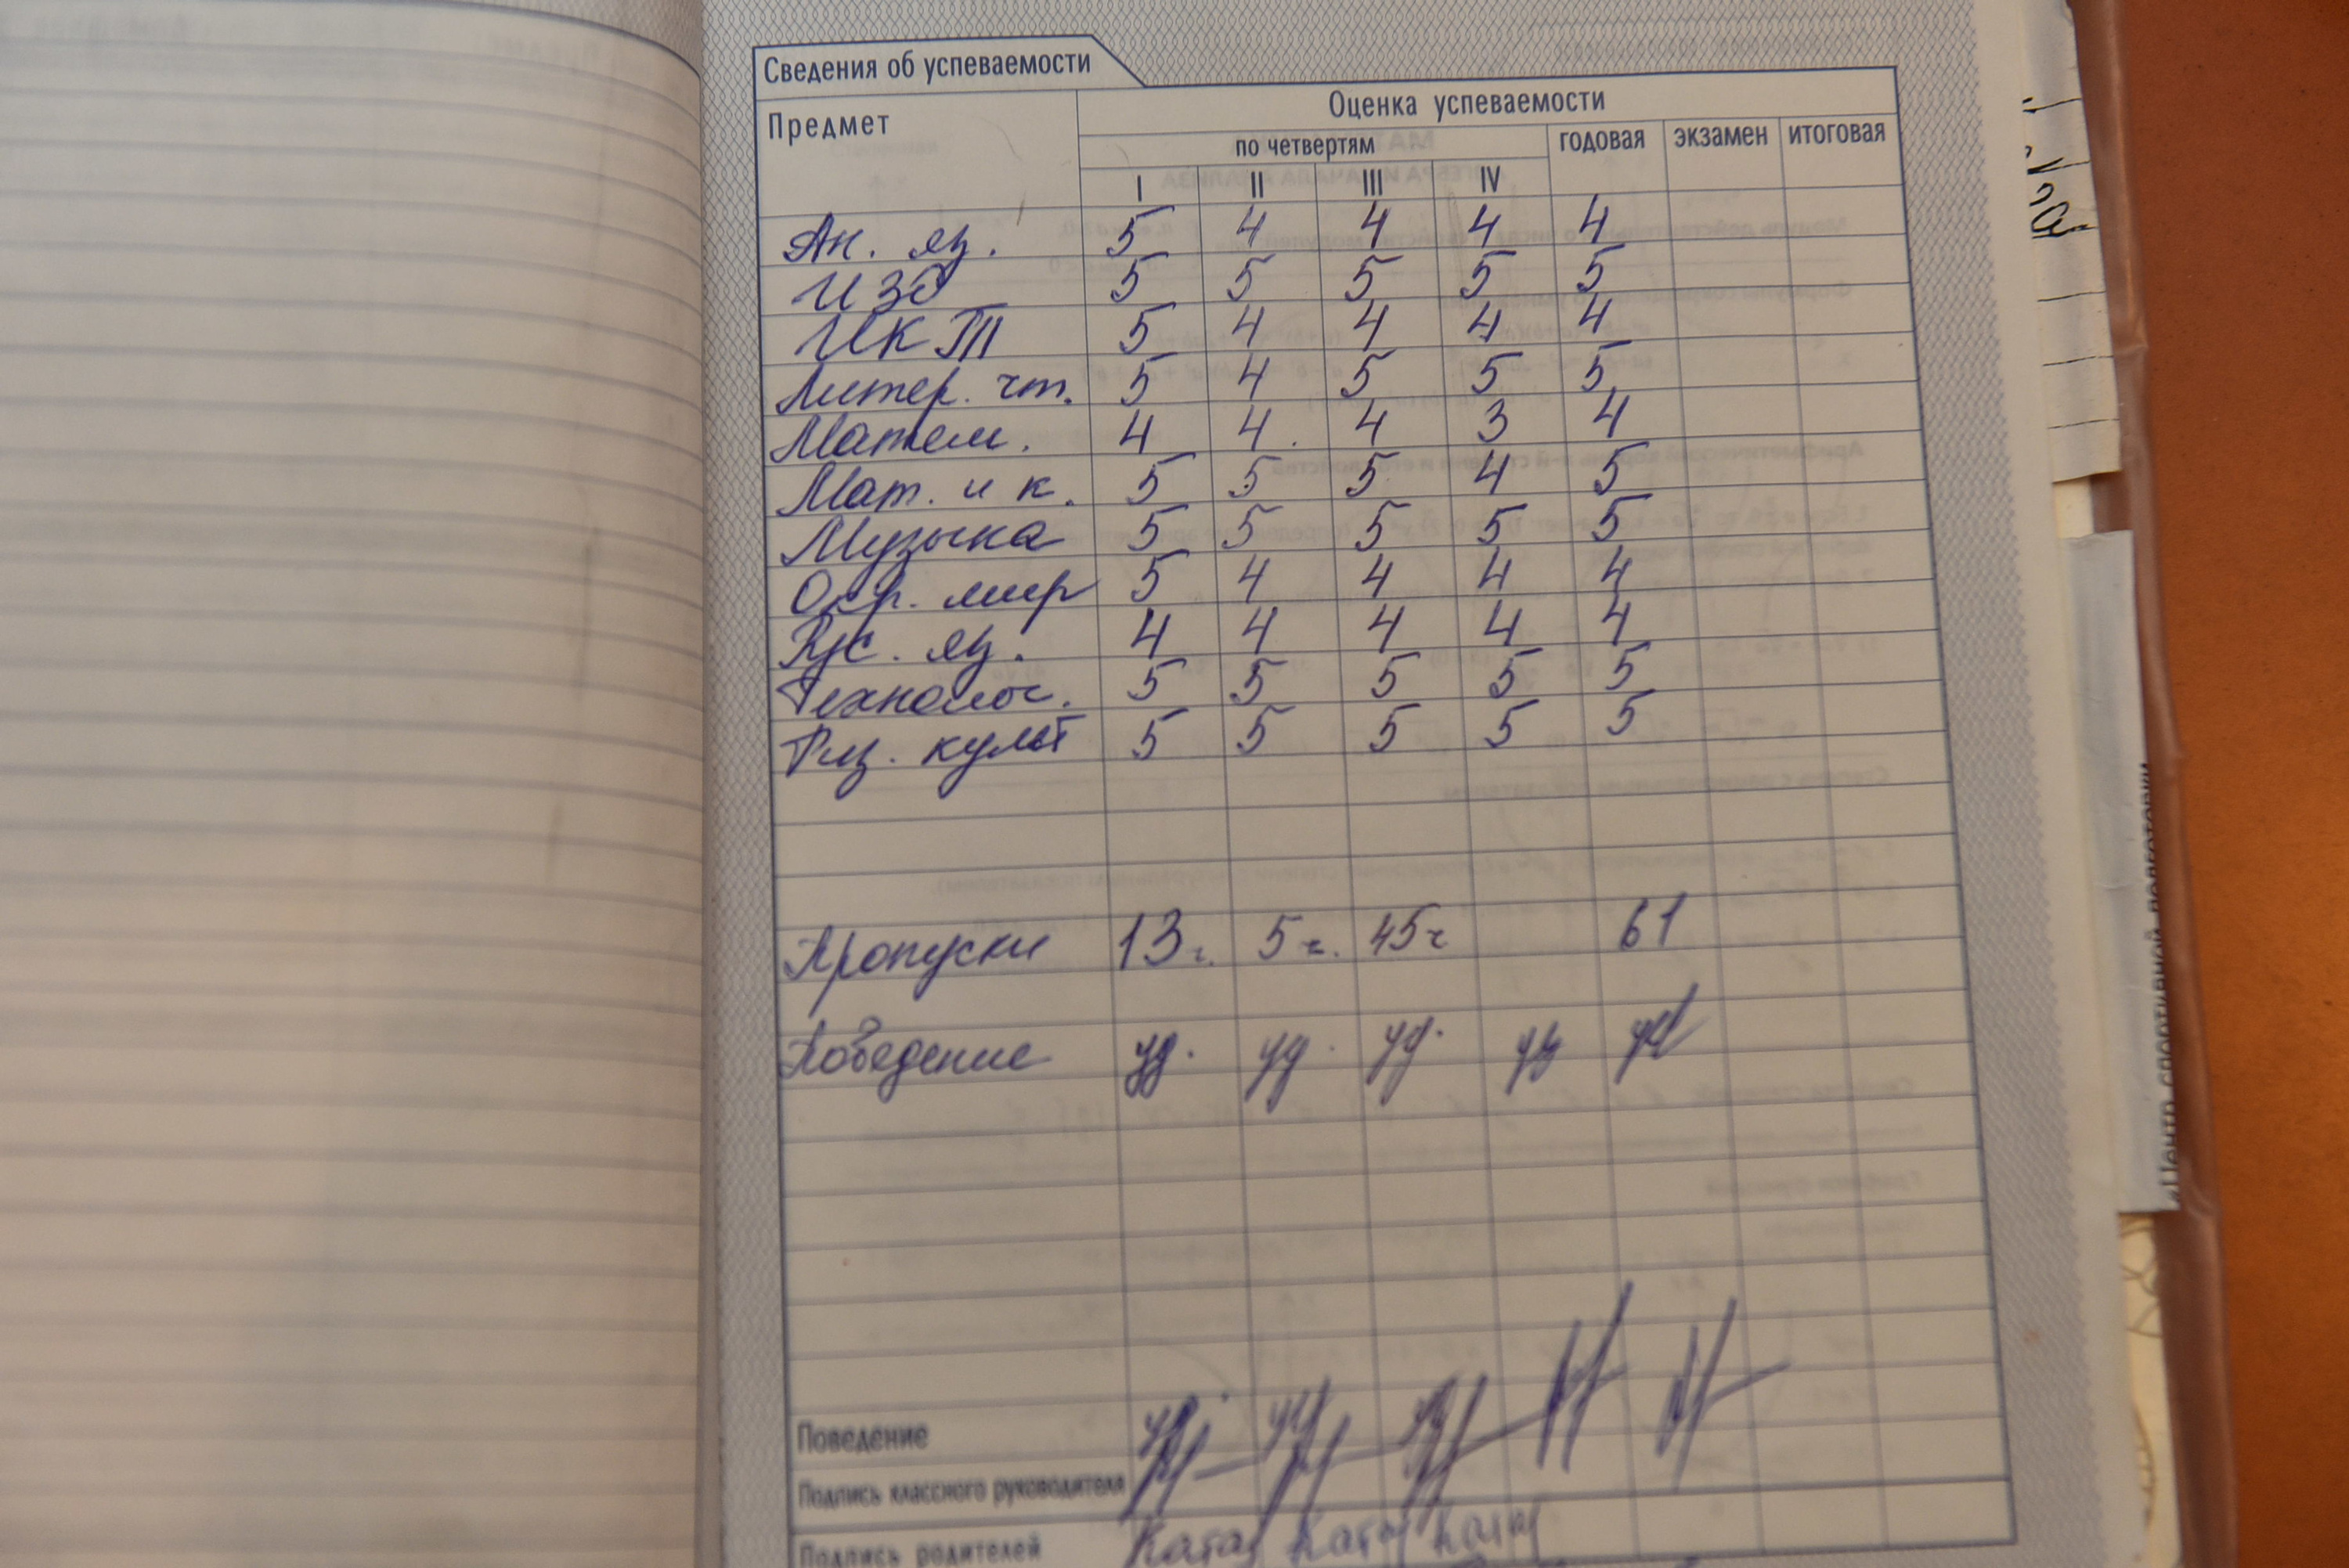 Сведения об успеваемости
Предмет
Оценка успеваемости
по четвертям годовая экзамен итоговая
I II III IV
Ан. яз. 5 4 4 4 4
ИЗО 5 5 5 5 5
ИКТ 5 4 4 4 4
Литер. чт. 5 4 5 5 5
Матем. 4 4 4 3 4
Мат. и к. 5 5 5 4 5
Музыка 5 5 5 5 5
Окр. мир 5 4 4 4 4
Рус. яз. 4 4 4 4 4
Технолог. 5 5 5 5 5
Физ. культ 5 5 5 5 5
Пропуски 13 ч. 5 ч. 45 ч 61
Поведение уд. уд. уд. уд уд
Поведение уд. уд уд
Подпись классного руководителя
Подпись родителей
Центр спортивной подготовки